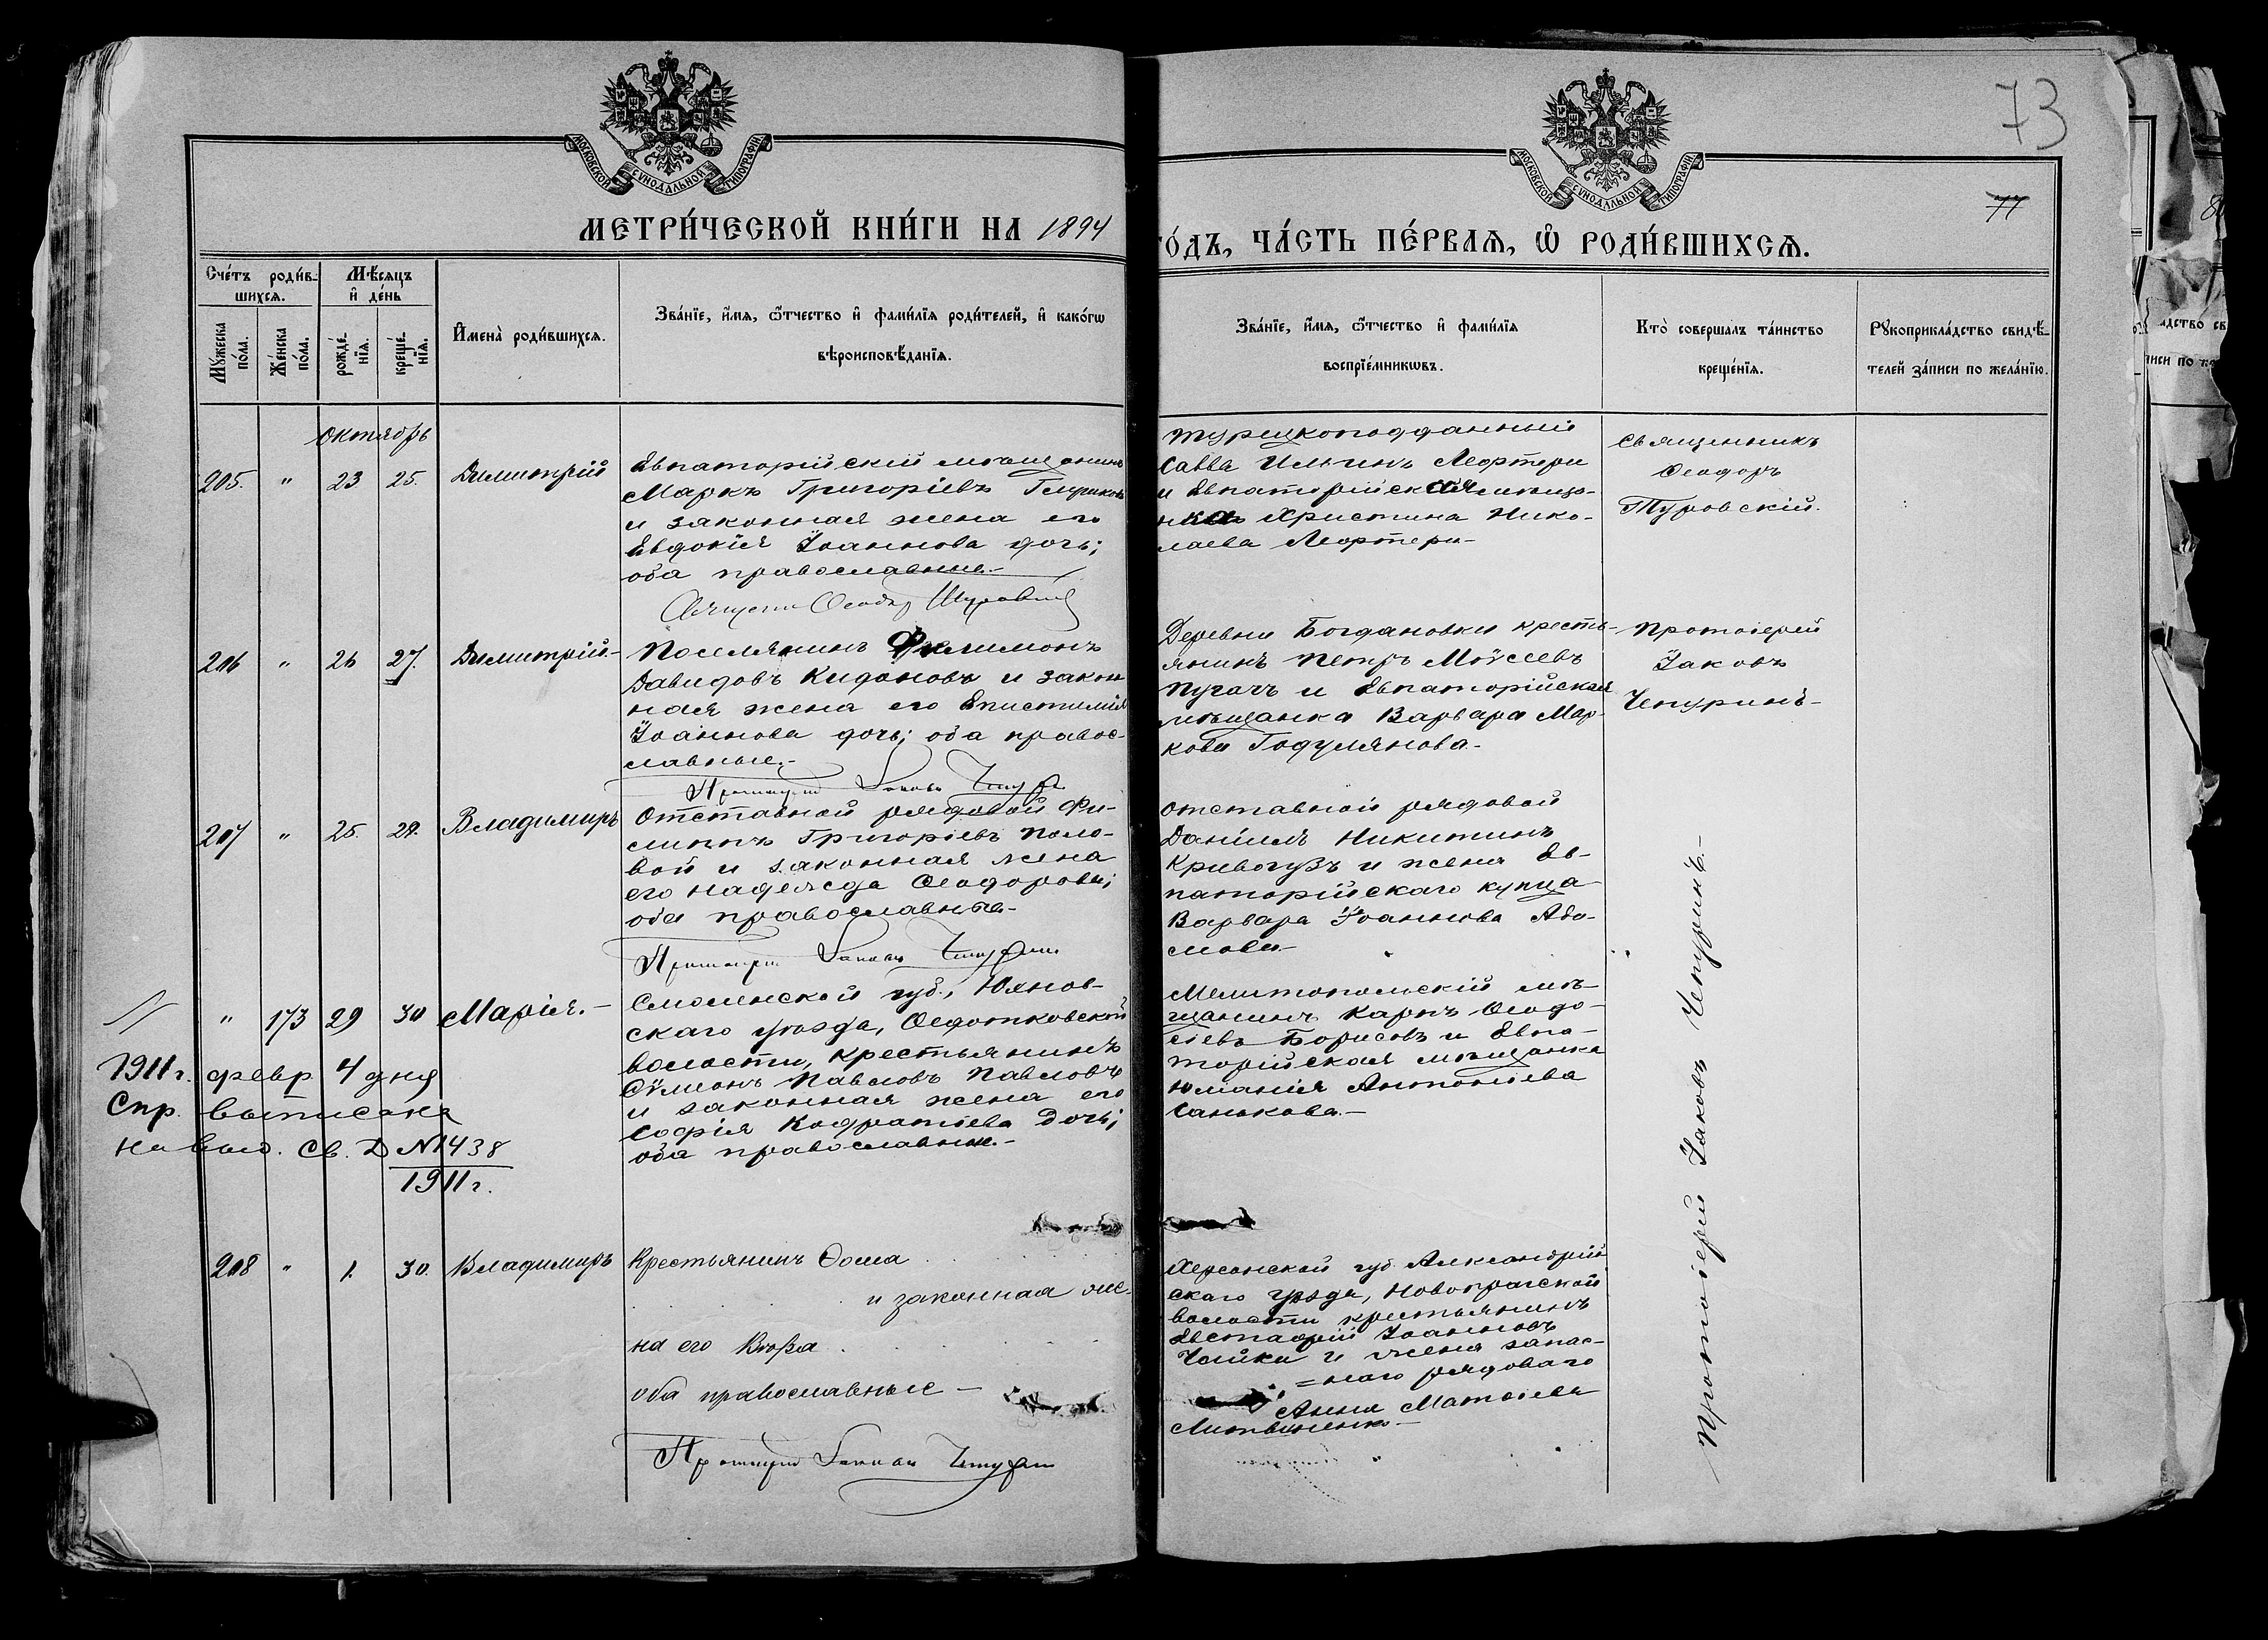 73
МОСКОВСКОЙ СѴНОДАЛЬНОЙ ТИПОГРАФІИ
МОСКОВСКОЙ СѴНОДАЛЬНОЙ ТИПОГРАФІИ
77
МЕТРИ́ЧЕСКОЙ КНИ́ГИ НА 1894
ГО́ДЪ, ЧА́СТЬ ПЕ́РВАѦ, Ѡ҆ РОДИ́ВШИХСѦ.
Сче́тъ роди́в-
шихсѧ.
Мѣ́сѧцъ
и҆ де́нь
Мꙋ́жеска
по́ла.
Же́нска
по́ла.
рожде́-
нїѧ.
креще́-
нїѧ.
И҆мена̀ роди́вшихсѧ.
Зва́нїе, и҆́мѧ, ѻ҆́тчество и҆ фами́лїѧ роди́телей, и҆ како́гѡ
вѣроисповѣ́данїѧ.
Зва́нїе, и҆́мѧ, ѻ҆́тчество и҆ фами́лїѧ
воспрїе́мникѡвъ.
Кто̀ соверша́лъ та́инство
креще́нїѧ.
Рꙋкоприкла́дство свидѣ́-
телей за́писи по жела́нїю.
октябрь
205. " 23 25. Димитрій
Евпаторійскій мѣщанинъ
Маркъ Григоріевъ
и законная жена его
Евдокія Іоаннова дочь;
оба православные.-
Турецкоподданный
Савва Ильинъ Лефтери
и Евпаторійская мѣща-
нка Христина Нико-
лаева Лефтери-
Священникъ
Ѳеодоръ
Туровскій.
206 " 26 27. Димитрій.-
Поселянинъ Филимонъ
Давидовъ Кидоновъ и закон
ная жена его Епистимія
Іоаннова дочь; оба правос-
славные.-
Протоіерей Іаковъ Чепурин
Деревни Богдановки кресть-
янинъ Петръ Моѵсеевъ
Пугачъ и Евпаторійская
мѣщанка Варвара Мар-
кова Годулянова.-
Протоіерей
Іаковъ
Чепуринъ-
207 " 25. 29. Владимиръ
Отставной рядовой Фи-
липпъ Григоріевъ Поло-
вой и законная жена
его Надежда Ѳеодорова;
оба православные-
Протоіерей Іаковъ Чепурин
отставной рядовой
Даніилъ Никитинъ
Кривогузъ и жена Ев-
паторійскаго купца
Варвара Іоаннова Ада-
мова-
" 173 29 30 Марія.-
Смоленской губ., Юхнов-
скаго уѣзда, Ѳедотковской
волости, крестьянинъ
Сѵмеонъ Павловъ Павловъ
и законная жена его
Софія Кодратіева дочь;
оба православные.-
Мелитопольскій мѣ-
щанинъ Карпъ Ѳеодо-
сіевъ Борисовъ и Евпа-
торійская мѣщанка
Юліанія Антоніева
Санькова.-
1911 г. февр 4 дня
Спр. выписана
на выд. Св. Д № 1438
1911 г.
208 " 1. 30. Владимиръ
Крестьянинъ Ѳома
и законная же-
на его Вѣра
оба православные-
Протоіерей Іаковъ Чепурин
Херсонской губ. Александрій-
скаго уѣзда, Новопрагской
волости крестьянинъ
Евстафій Іоанновъ
Чайка и жена запас-
=наго рядоваго
Анна Матѳіева
Литвиненко-
Протоіерей Іаковъ Чепуринъ.-